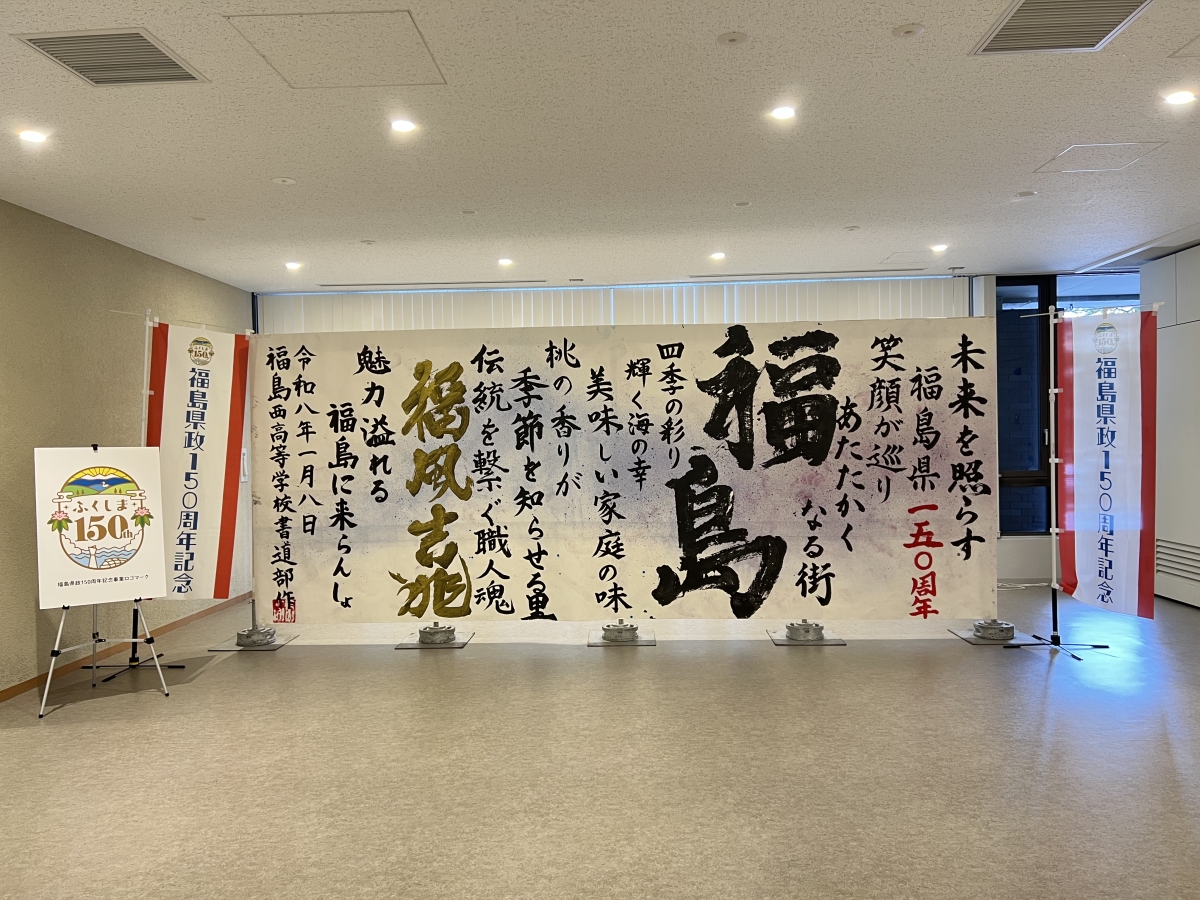 未来を照らす
福島県一五〇周年
笑顔が巡り
あたたかく
なる街
福島
四季の彩り
輝く海の幸
美味しい家庭の味
桃の香りが
季節を知らせる里
伝統を繋ぐ職人魂
福風吉兆
魅力溢れる
福島に来らんしょ
令和八年一月八日
福島西高等学校書道部作
ふくしま
150
福島県政150周年記念
ふくしま
150th
福島県政150周年記念事業ロゴマーク
福島県政150周年記念